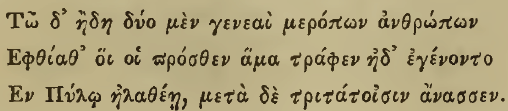 Τῶ δ' ἤδη δύο μὲν γενεαὶ μερόπων ἀνθρώπων
Εφθίαθ' ὅι οἱ πρόσθεν ἅμα τράφεν ἠδ' ἐγένοντο
Εν Πύλῳ ἠλαθέῃ, μετὰ δὲ τριτάτοισιν ἄνασσεν.